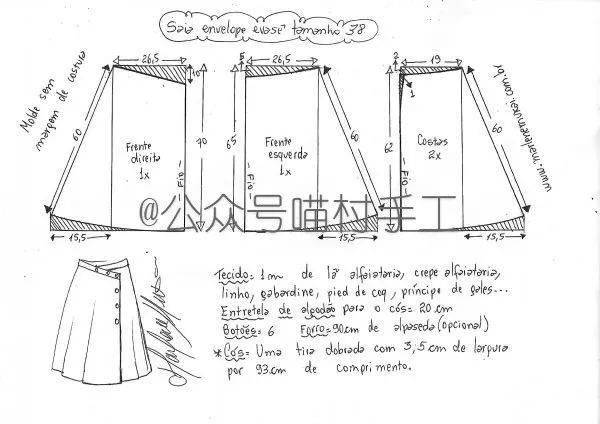 Saia envelope evasê tamanho 38
Molde sem
margem de costura
26,5
10
60
70
Frente
direita
1x
Fio
15,5
5
26,5
65
60
Frente
esquerda
1x
Fio
15,5
2
19
1
62
60
Costas
2x
Fio
15,5
www.marlenemukai.com.br
@公众号喵村手工
Tecido= 1m de lã alfaiataria, crepe alfaiataria,
linho, gabardine, pied de coq, príncipe de gales...
Entretela de algodão para o cós= 20cm
Botões= 6 Forro= 90cm de alpaseda (opcional)
*Cós= Uma tira dobrada com 3,5cm de largura
por 93cm de comprimento.